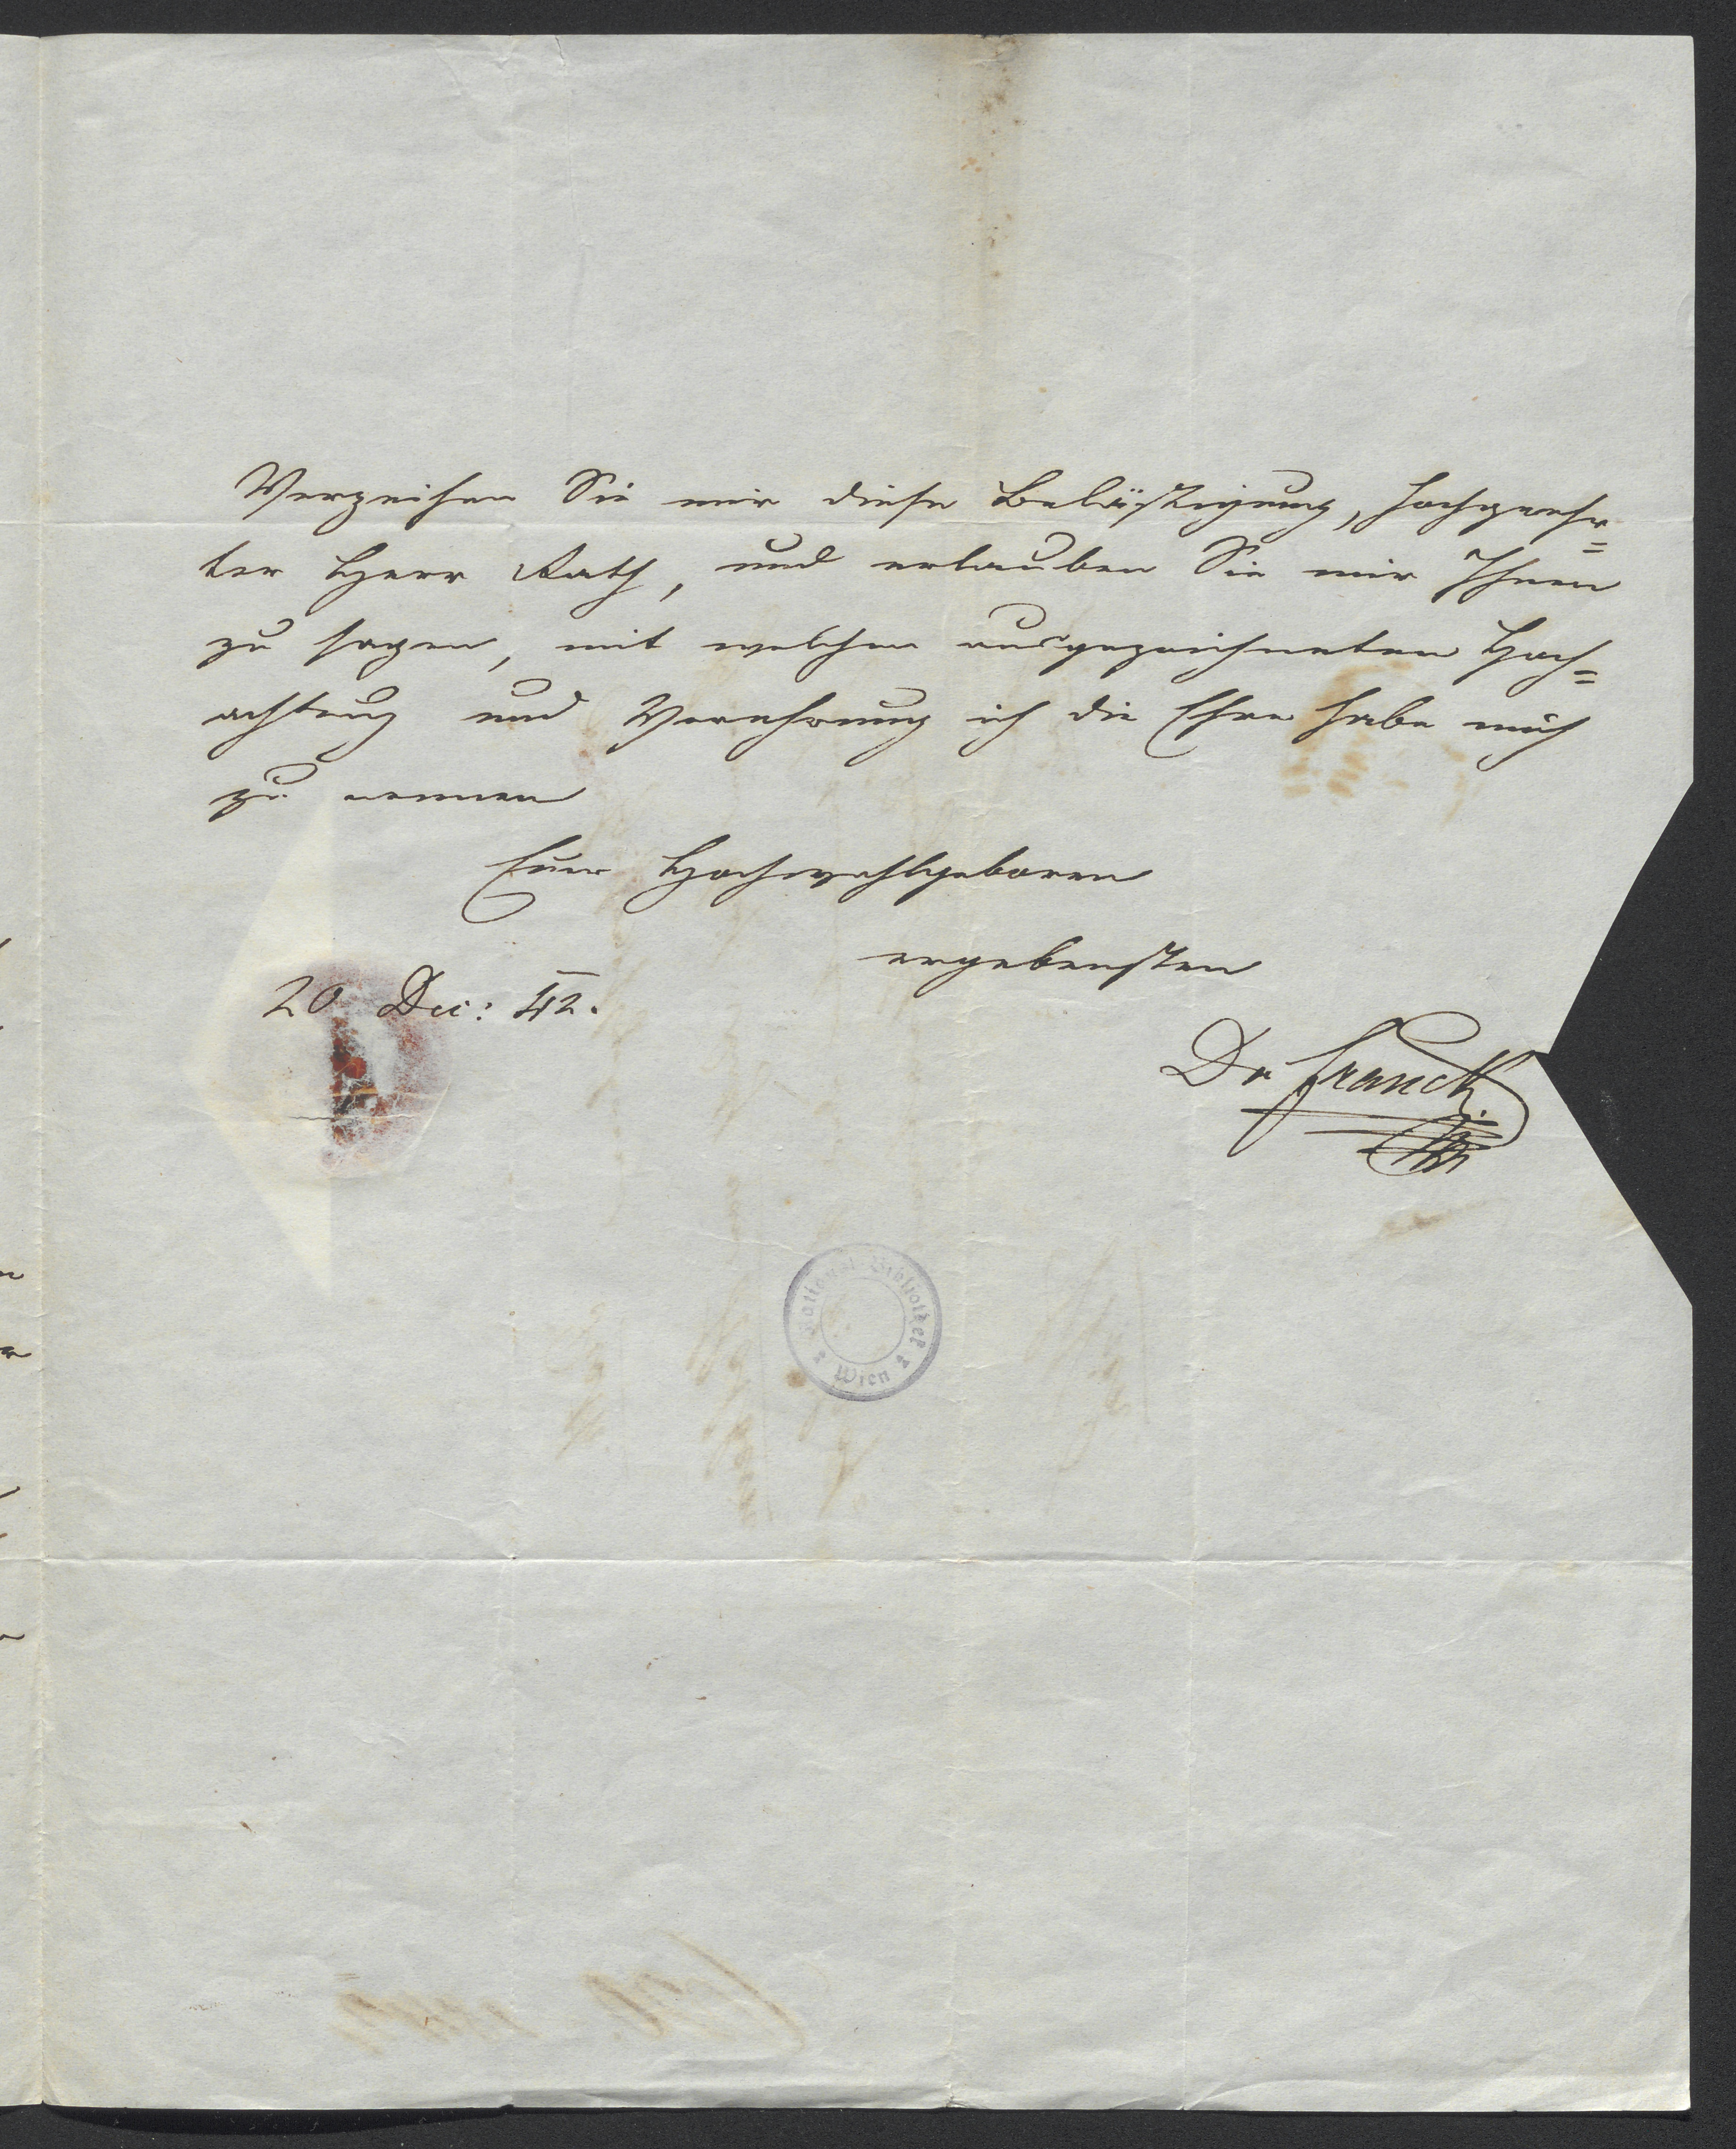 Verzeihen Sie mir diese Belästigung, hochgeehr=
ter Herr Rath, und erlauben Sie mir Ihnen
zu sagen, mit welcher ausgezeichneten Hoch=
achtung und Verehrung ich die Ehre habe mich
zu nennen
Euer Hochwohlgeboren
ergebensten
20 Dec: 42.
Dr Franck
National-Bibliothek
Wien